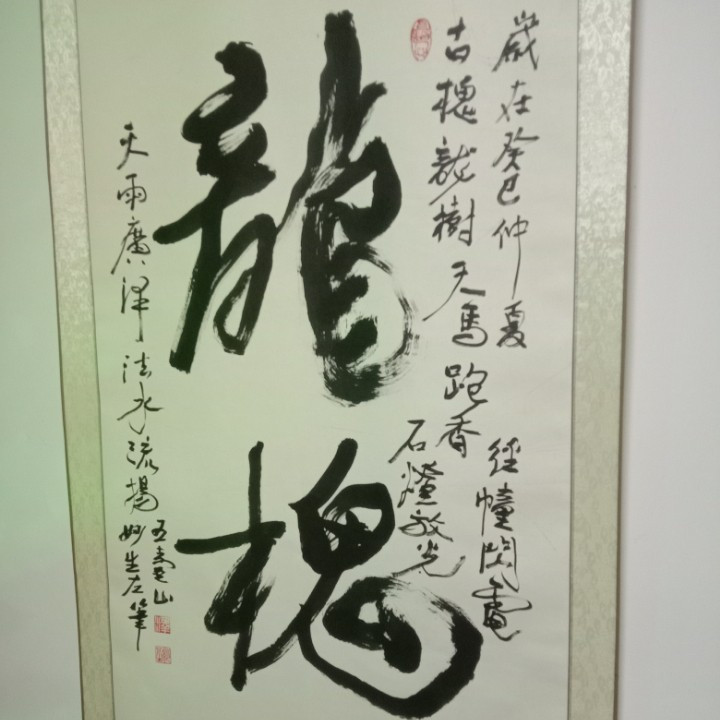 歲在癸巳仲夏
古槐龍樹天馬跑香
石燈放光
經幢閃電
龍槐
天雨廣澤法水流揚
五臺山
妙生左筆